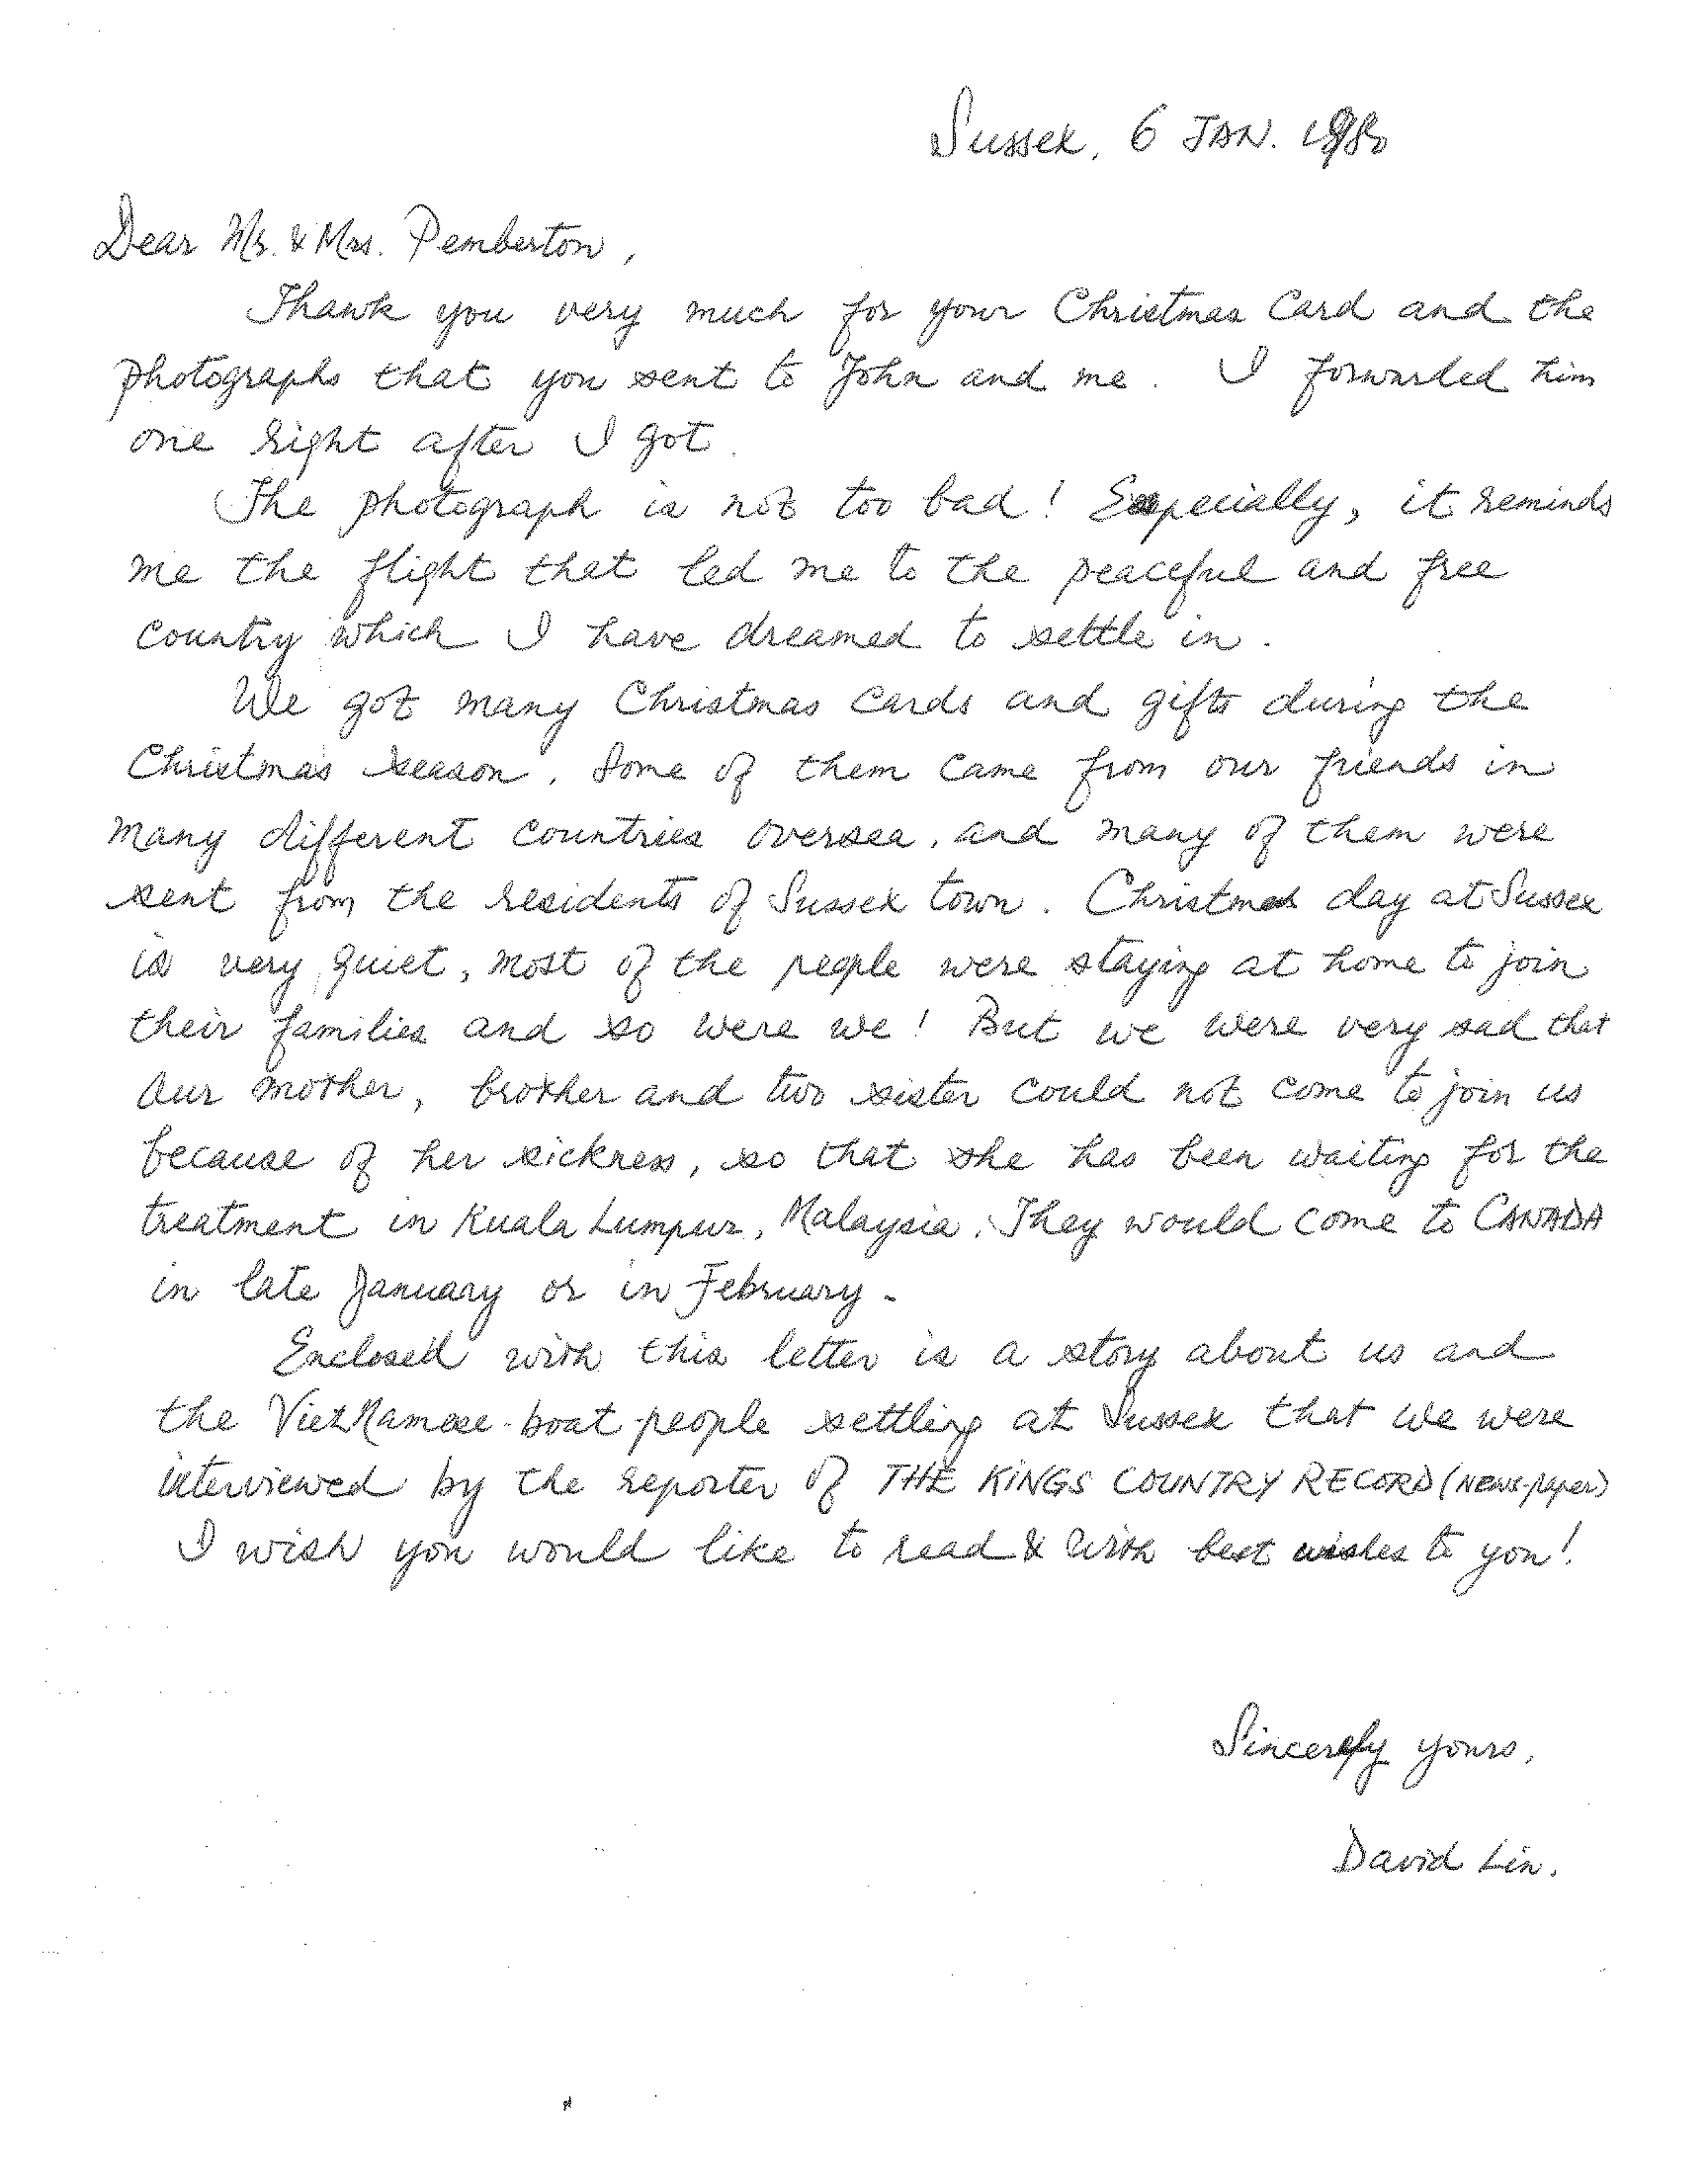 Sussex, 6 JAN. 1980
Dear Mr. & Mrs. Pemberton,
Thank you very much for your Christmas Card and the
photographs that you sent to John and me. I forwarded him
one right after I got.
The photograph is not too bad! Especially, it reminds
me the flight that led me to the peaceful and free
country which I have dreamed to settle in.
We got many Christmas cards and gifts during the
Christmas season. Some of them came from our friends in
many different countries oversea, and many of them were
sent from the residents of Sussex town. Christmas day at Sussex
is very quiet, most of the people were staying at home to join
their families and so were we! But we were very sad that
our mother, brother and two sister could not come to join us
because of her sickness, so that she has been waiting for the
treatment in Kuala Lumpur, Malaysia. They would come to CANADA
in late January or in February.
Enclosed with this letter is a story about us and
the VietNamese-boat-people settling at Sussex that we were
interviewed by the reporter of THE KINGS COUNTRY RECORD (News-paper)
I wish you would like to read & with best wishes to you!
Sincerely yours,
David Lin.